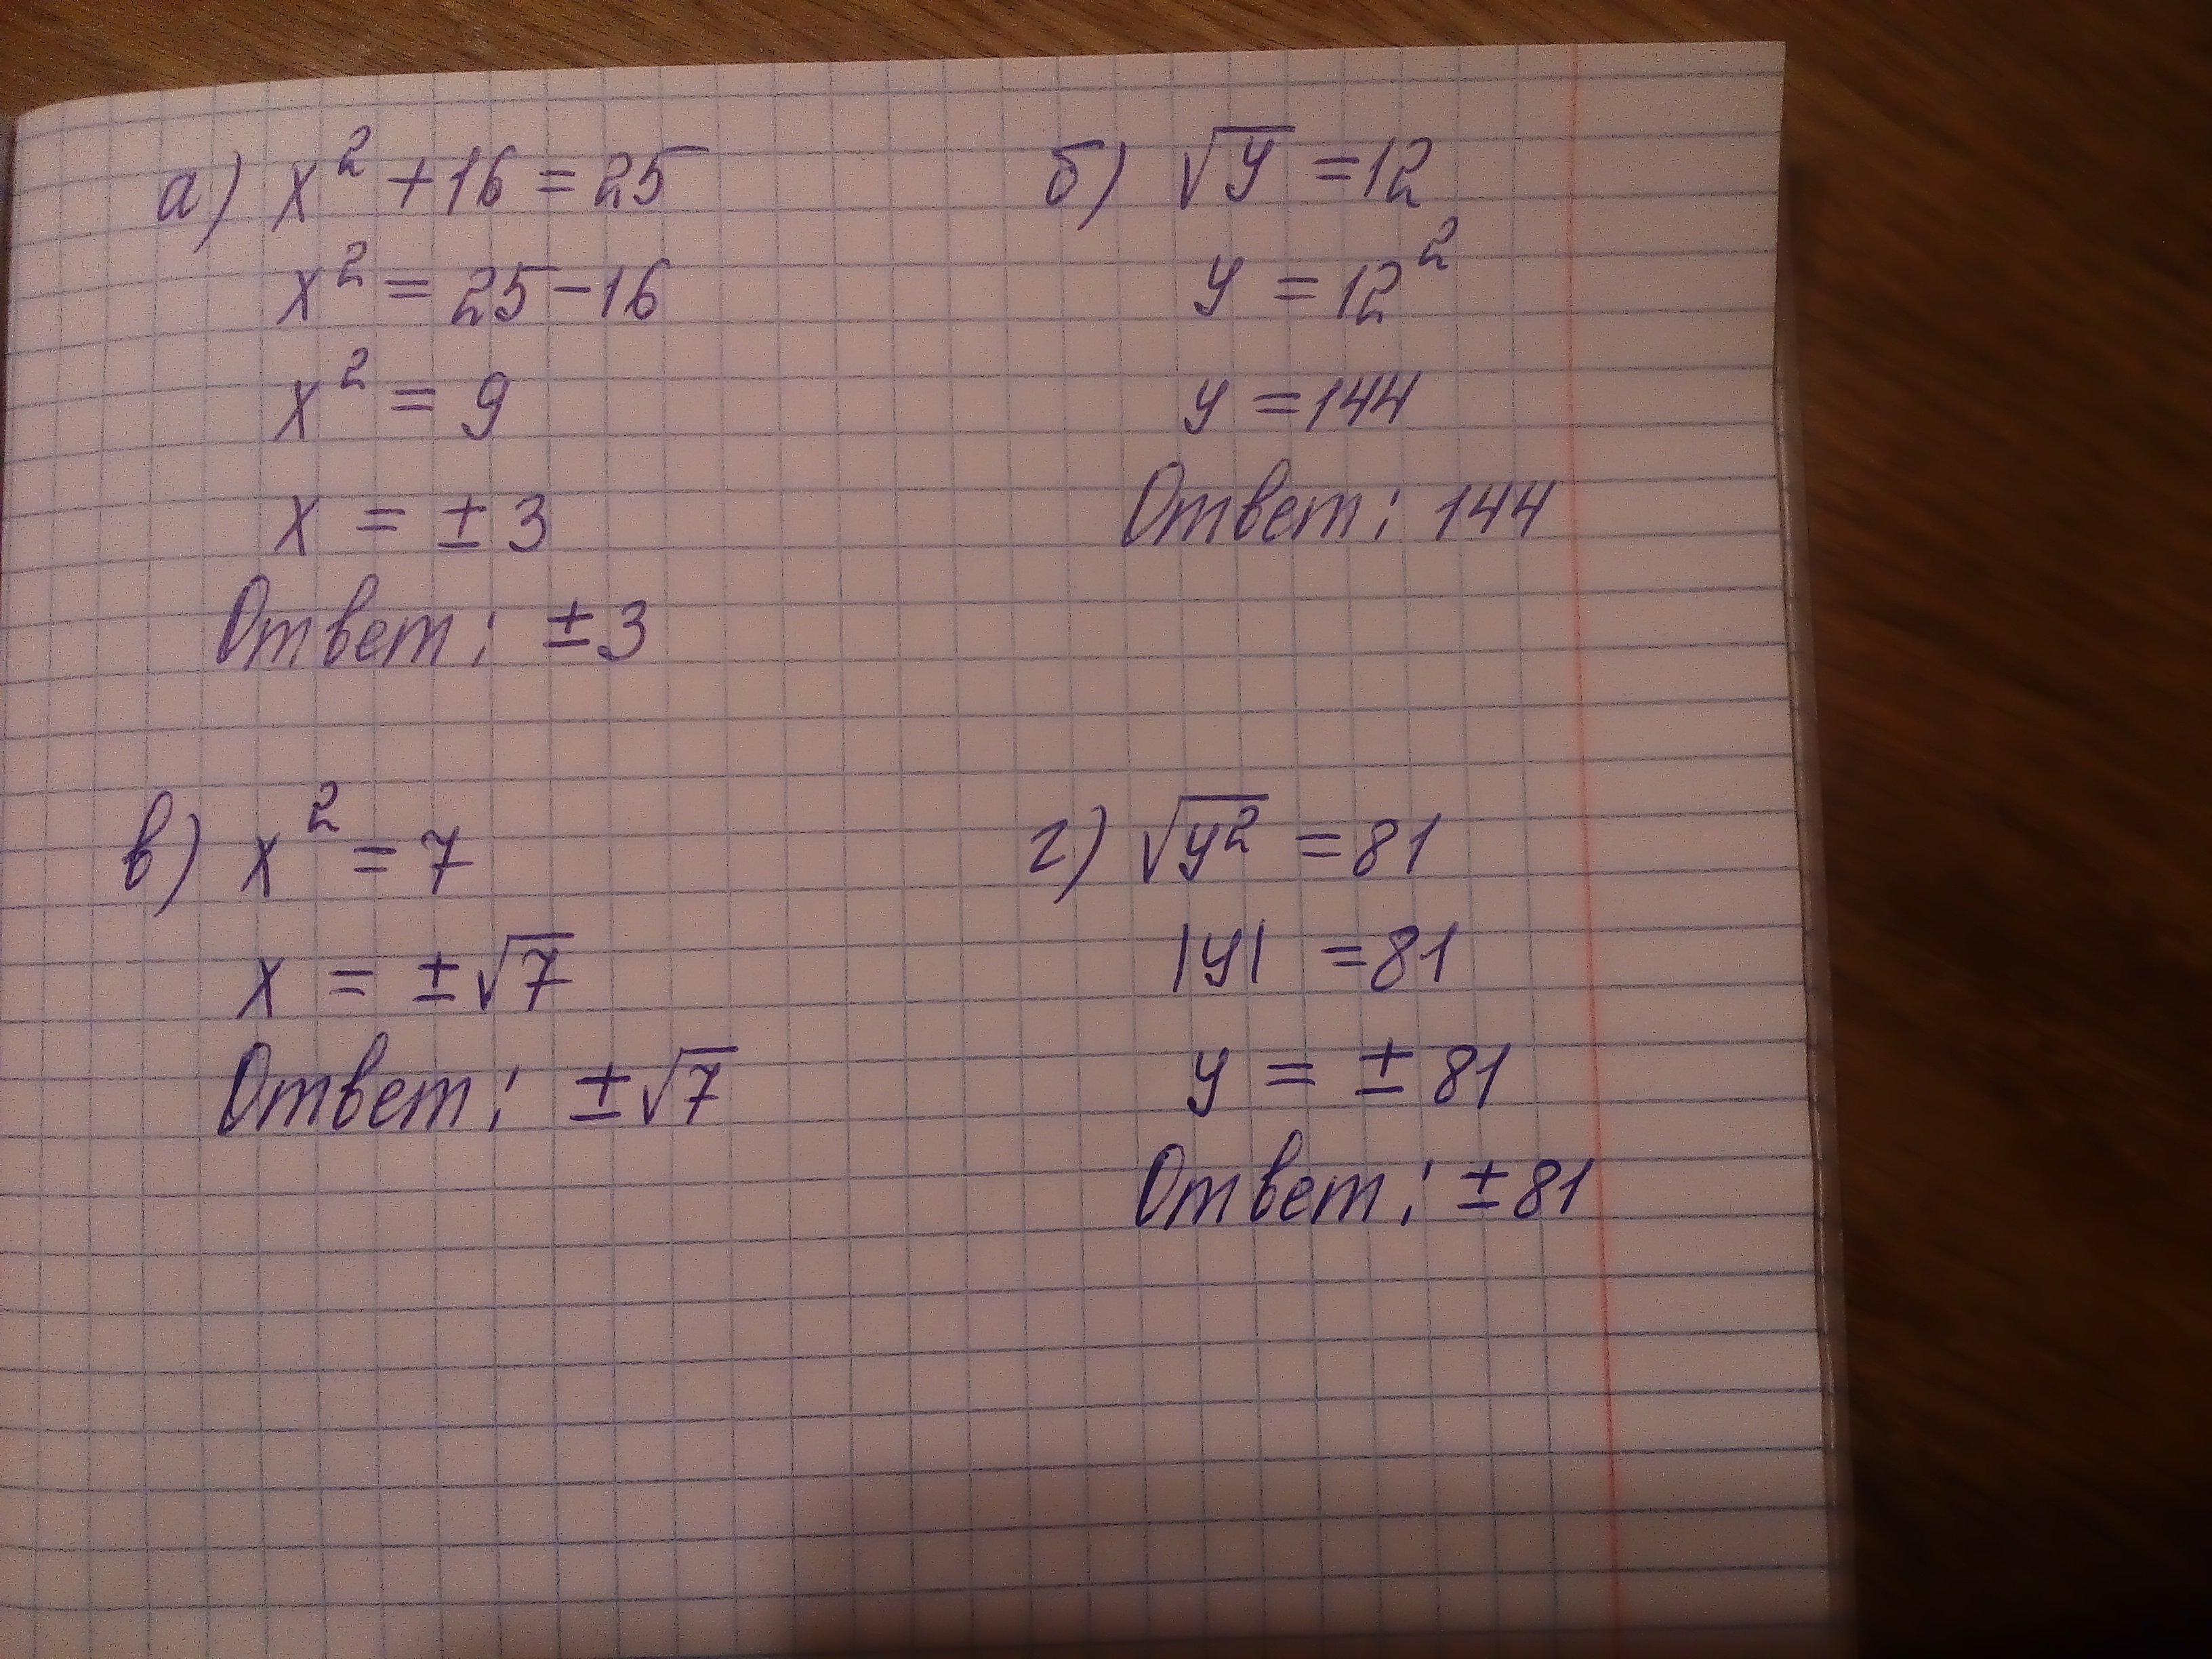 а) x² + 16 = 25
x² = 25 - 16
x² = 9
x = ± 3
Ответ: ± 3
б) √y = 12
y = 12²
y = 144
Ответ: 144
в) x² = 7
x = ± √7
Ответ: ± √7
г) √y² = 81
|y| = 81
y = ± 81
Ответ: ± 81